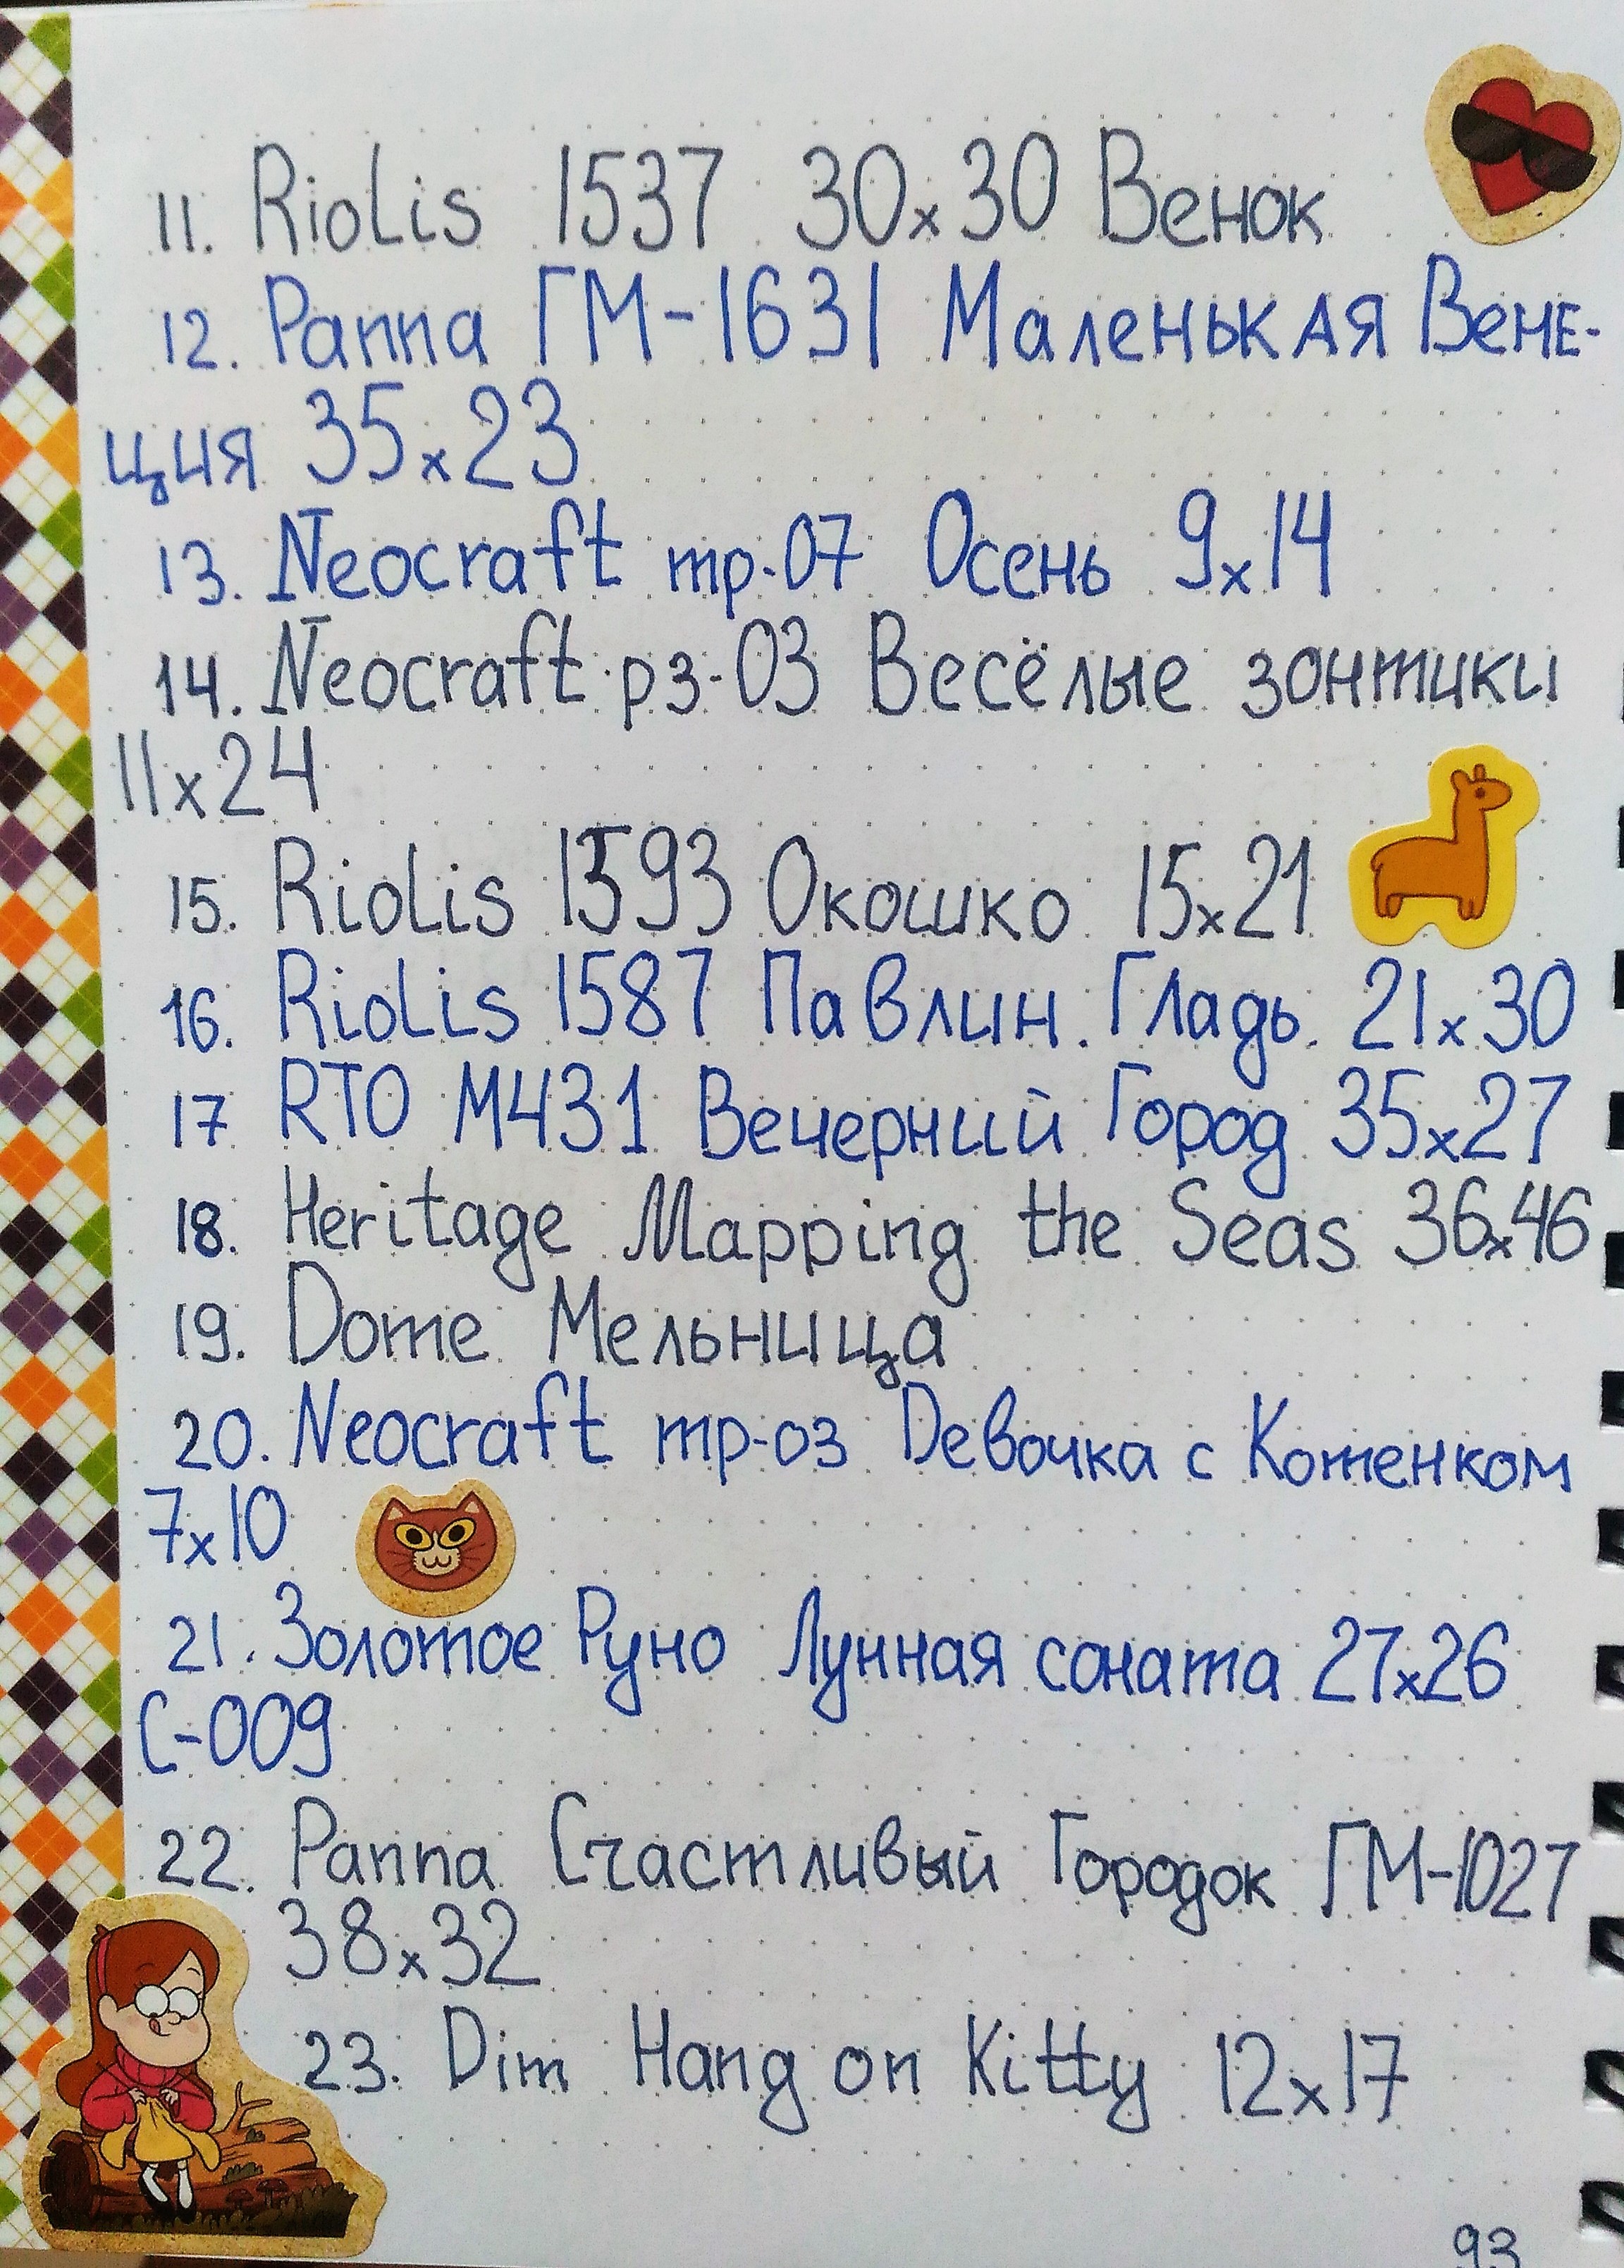 11. Riolis 1537 30x30 Венок
12. Panna ГМ-1631 Маленькая Вене-
ция 35x23
13. Neocraft тр-07 Осень 9x14
14. Neocraft рз-03 Весёлые зонтики
11x24
15. Riolis 1593 Окошко 15x21
16. Riolis 1587 Павлин. Гладь. 21x30
17 RTO M431 Вечерний Город 35x27
18. Heritage Mapping the Seas 36x46
19. Dome Мельница
20. Neocraft тр-03 Девочка с Котенком
7x10
21. Золотое Руно Лунная соната 27x26
С-009
22. Panna Счастливый Городок ГМ-1027
38x32
23. Dim Hang on Kitty 12x17
93